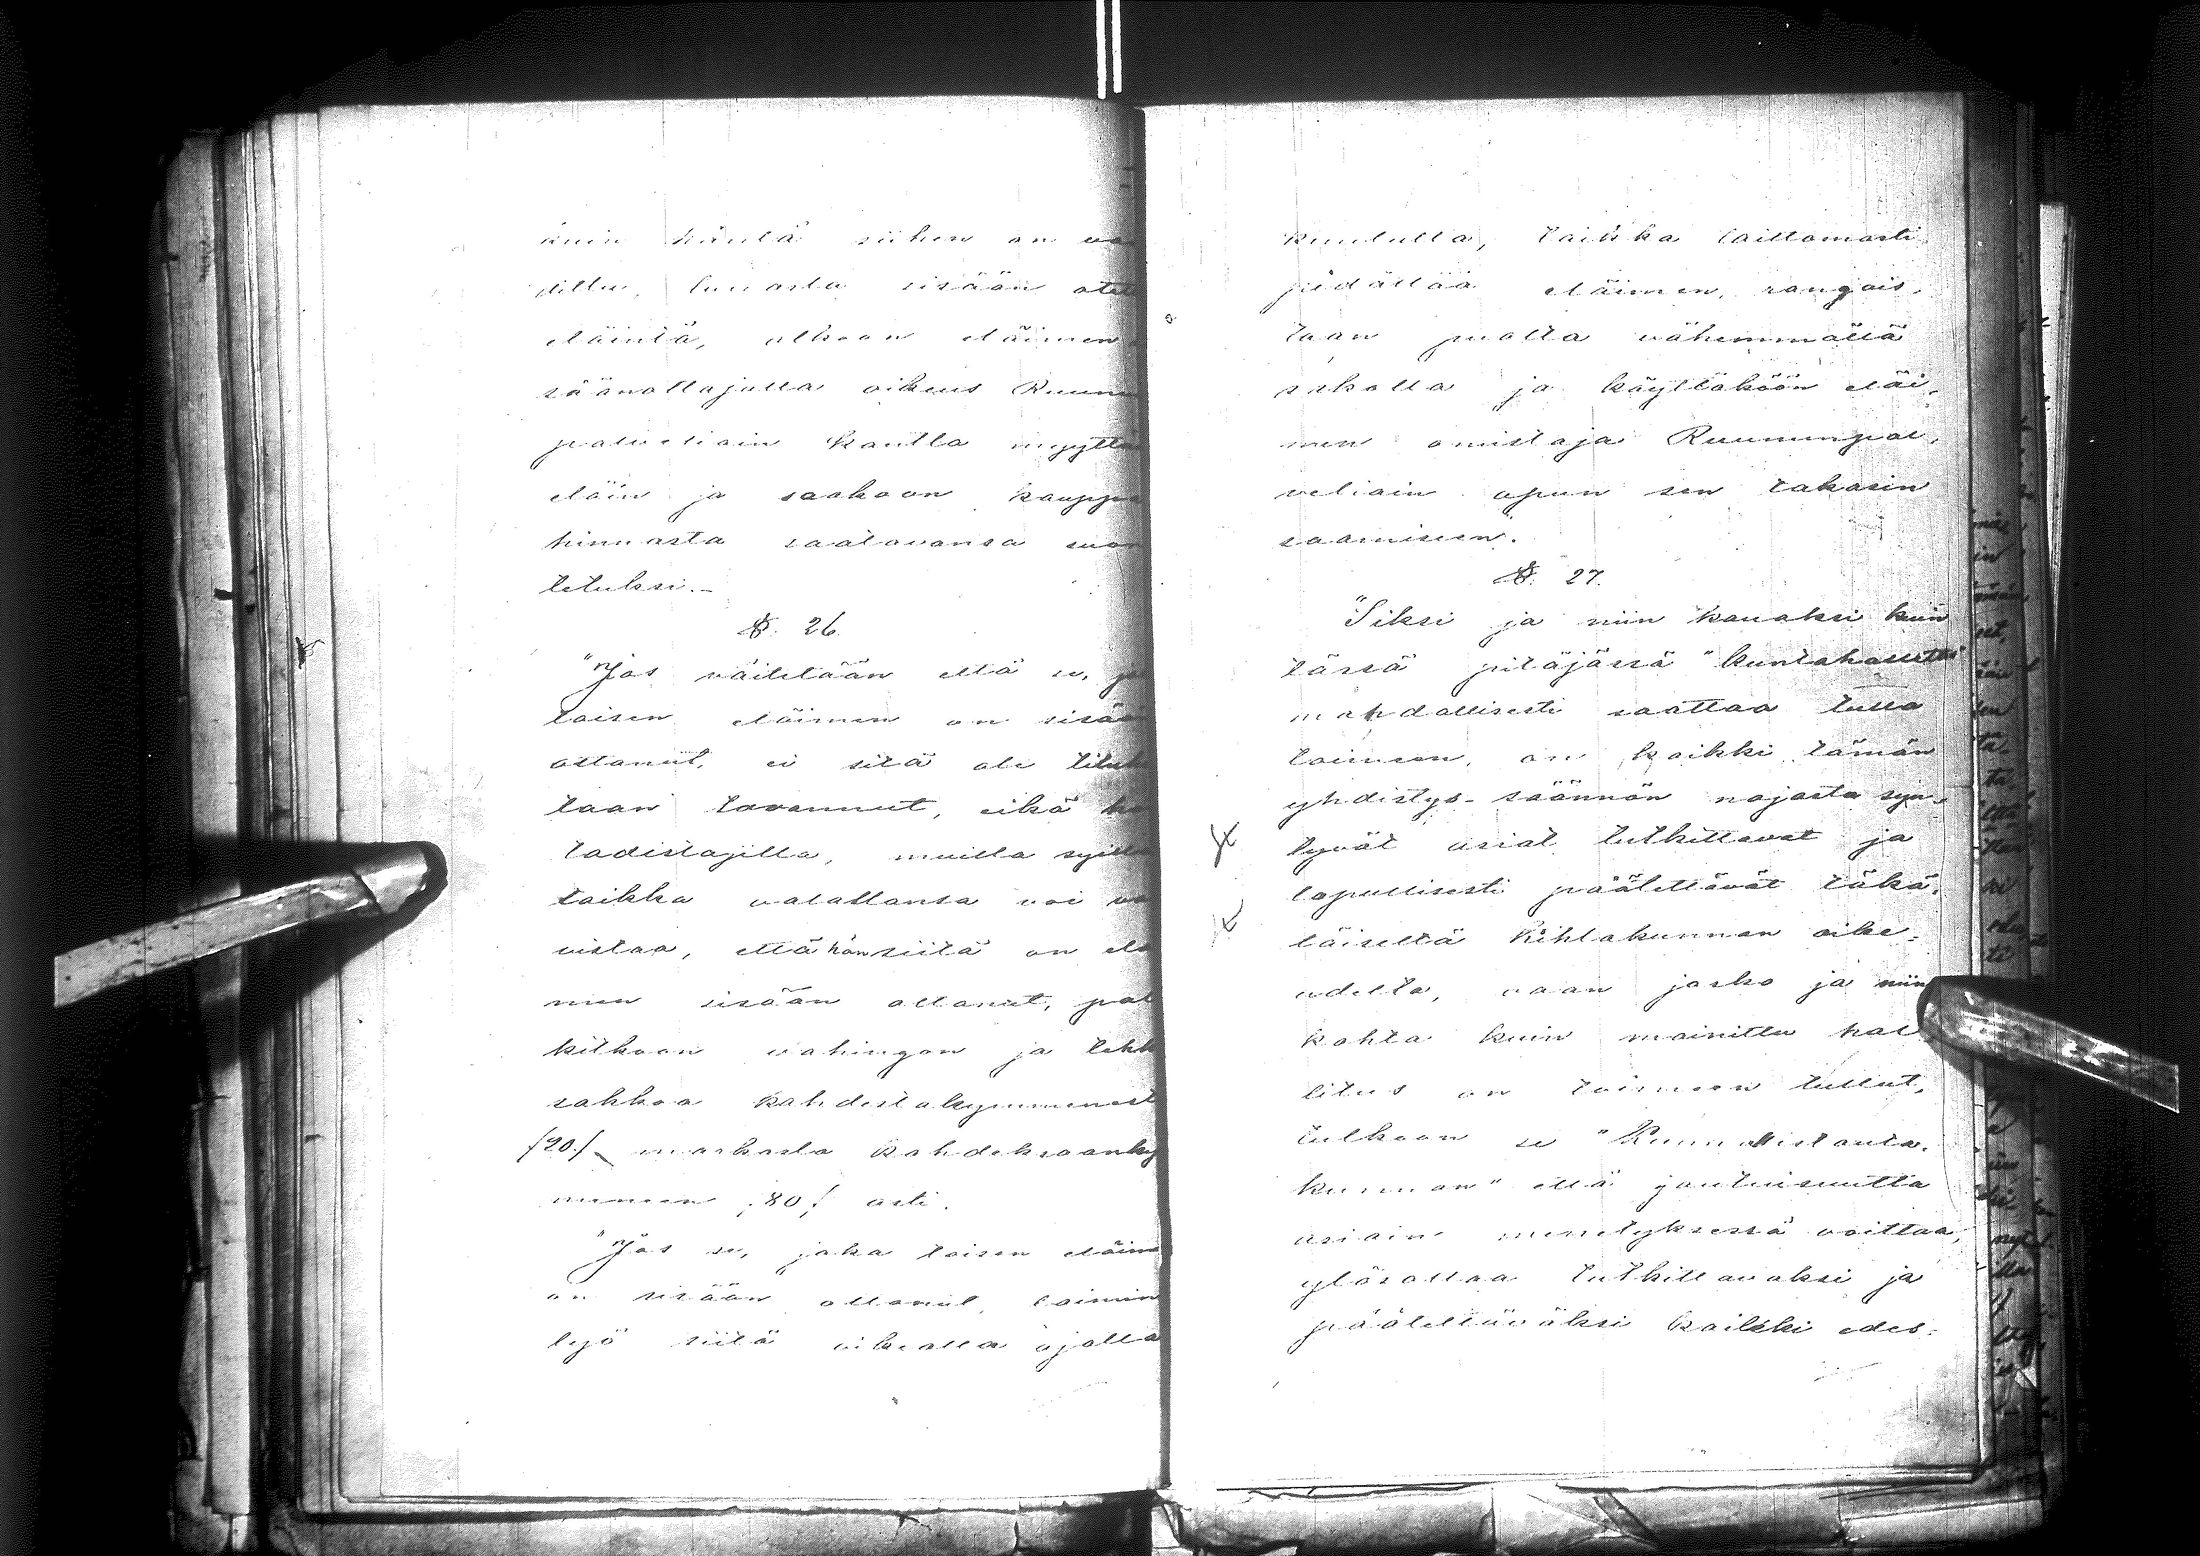 kuin häntä siihen on va
dittu, lunasta sisään otet
eläintä, olkoon eläimen
säänottajalla oikeus Ruunu
palveliain kautta myyttä
eläin ja saakoon kauppa
hinnasta saatavansa suor
tetuksi.-
§. 26.
"Jos väitetään että se, jo
toisen eläimen on sisää
ottanut, ei sitä ole tiluk
taan tavannut, eikä ho
tadistajilla, muilla syillä
taikka valallansa voi va
vistaa, että hän siitä on elä
men sisään ottanut, pal
kitkoon vahingon ja tehk
sakkoa kahdestakymmenest
/20./ markasta kahdeksaanky
meneen /80/ asti.
"Jos se, joka toisen eläim
on sisään ottanut, laimin
lyö siitä oikealla ajalla
kuuluttaa, taikka laittomasti
pidättää eläimen, rangais,
taan puolta vähemmällä
sakolla ja käyttäköön eläi,
men omistaja Ruununpal,
veliain apua sen takasin
saamiseen.
§. 27.
"Siksi ja niin kauaksi kuin
tässä pitäjässä "kuntahallitus"
mahdollisesti saattaa tulla
toimeen, on kaikki tämän
yhdistys-säännön nojasta syn-
tyvät asiat tutkittavat ja
lopullisesti päätettävät täkä,
läiseltä Kihlakunnan oike=
udelta, vaan josko ja niin
kohta kuin mainittu hal
litus on toimeen tullut,
tulkoon se "Kunnallistauta.
kunnan" että joutuisuutta
asiain menetyksessä voittaa,
ylösottaa tutkittavaksi ja
päätettäväksi kaikki edes=